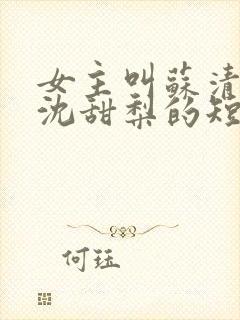 女主叫蘇清
沈甜梨的短
何珏